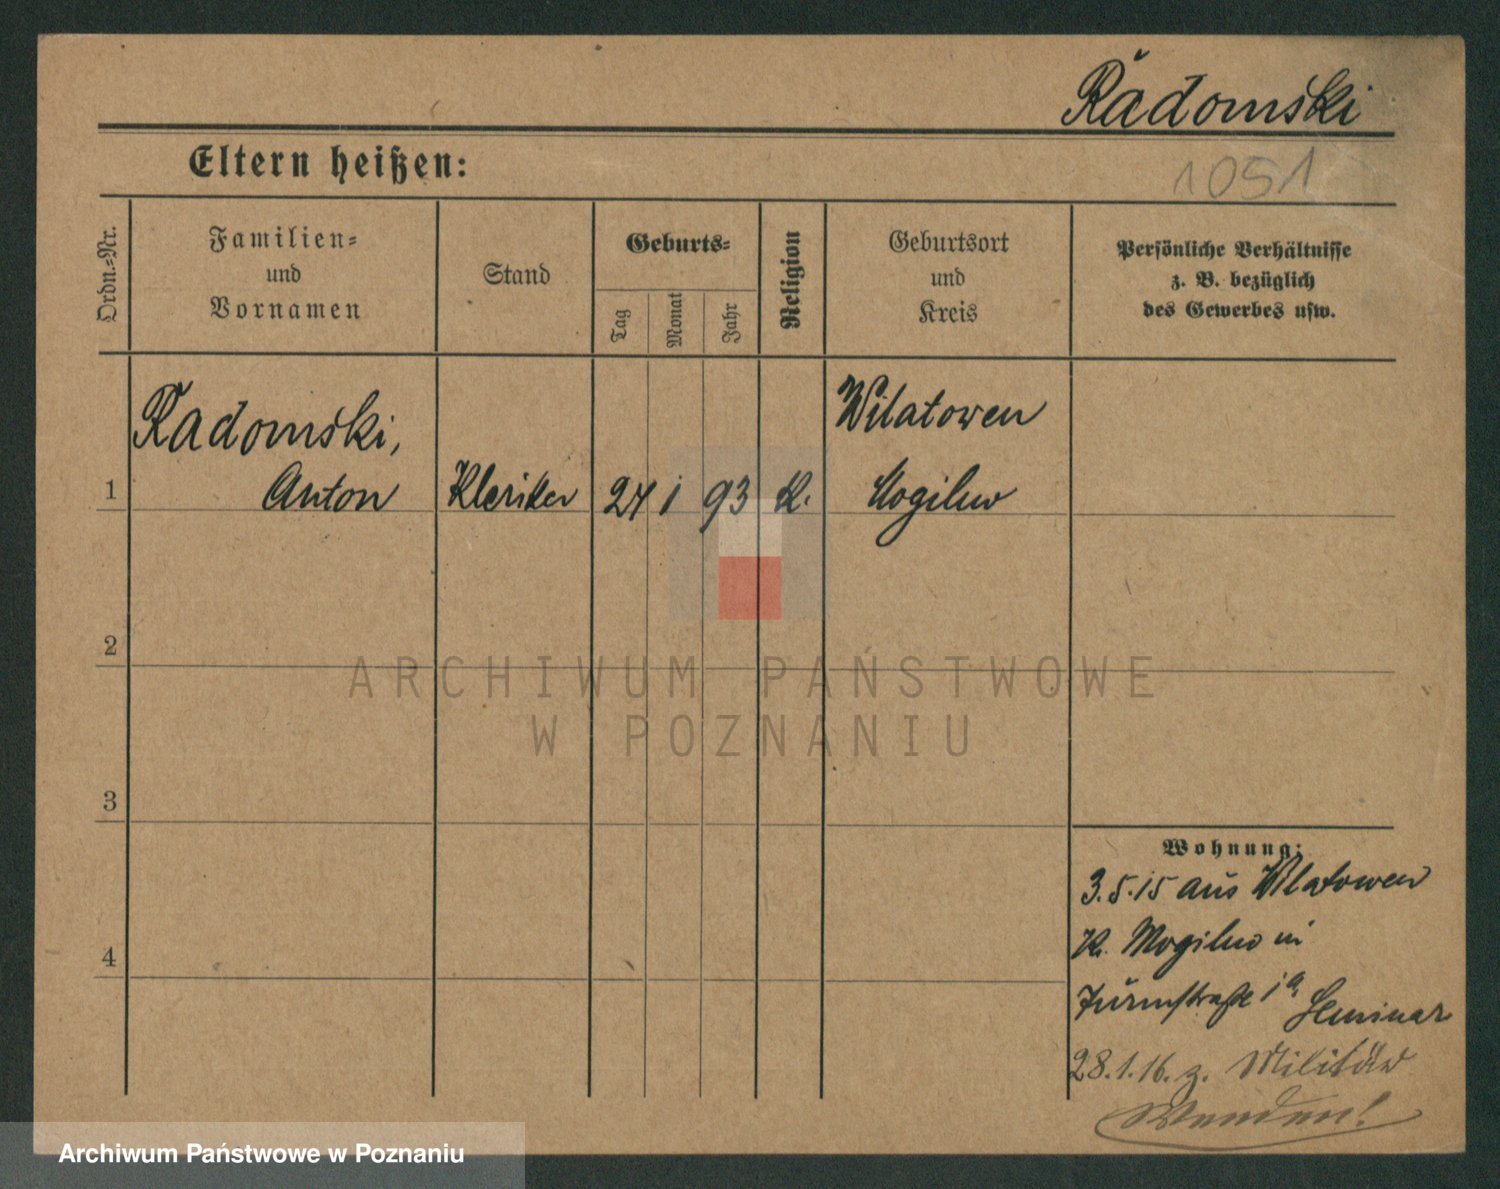 Radomski
Eltern heißen:
1051
Ordn.-Nr.
Familien-
und
Vornamen
Stand
Geburts-
Tag
Monat
Jahr
Religion
Geburtsort
und
Kreis
Persönliche Verhältnisse
z. B. bezüglich
des Gewerbes usw.
Radomski,
Anton
1
Kleriker
24
1
93
K.
Wilatowen
Mogilno
2
ARCHIWUM PAŃSTWOWE
W POZNANIU
3
Wohnung:
3.5.15 aus Wilatowen
K. Mogilno in
4
Turmstraße 1a Seminar
28.1.16. z. Militär
Wenden!
Archiwum Państwowe w Poznaniu